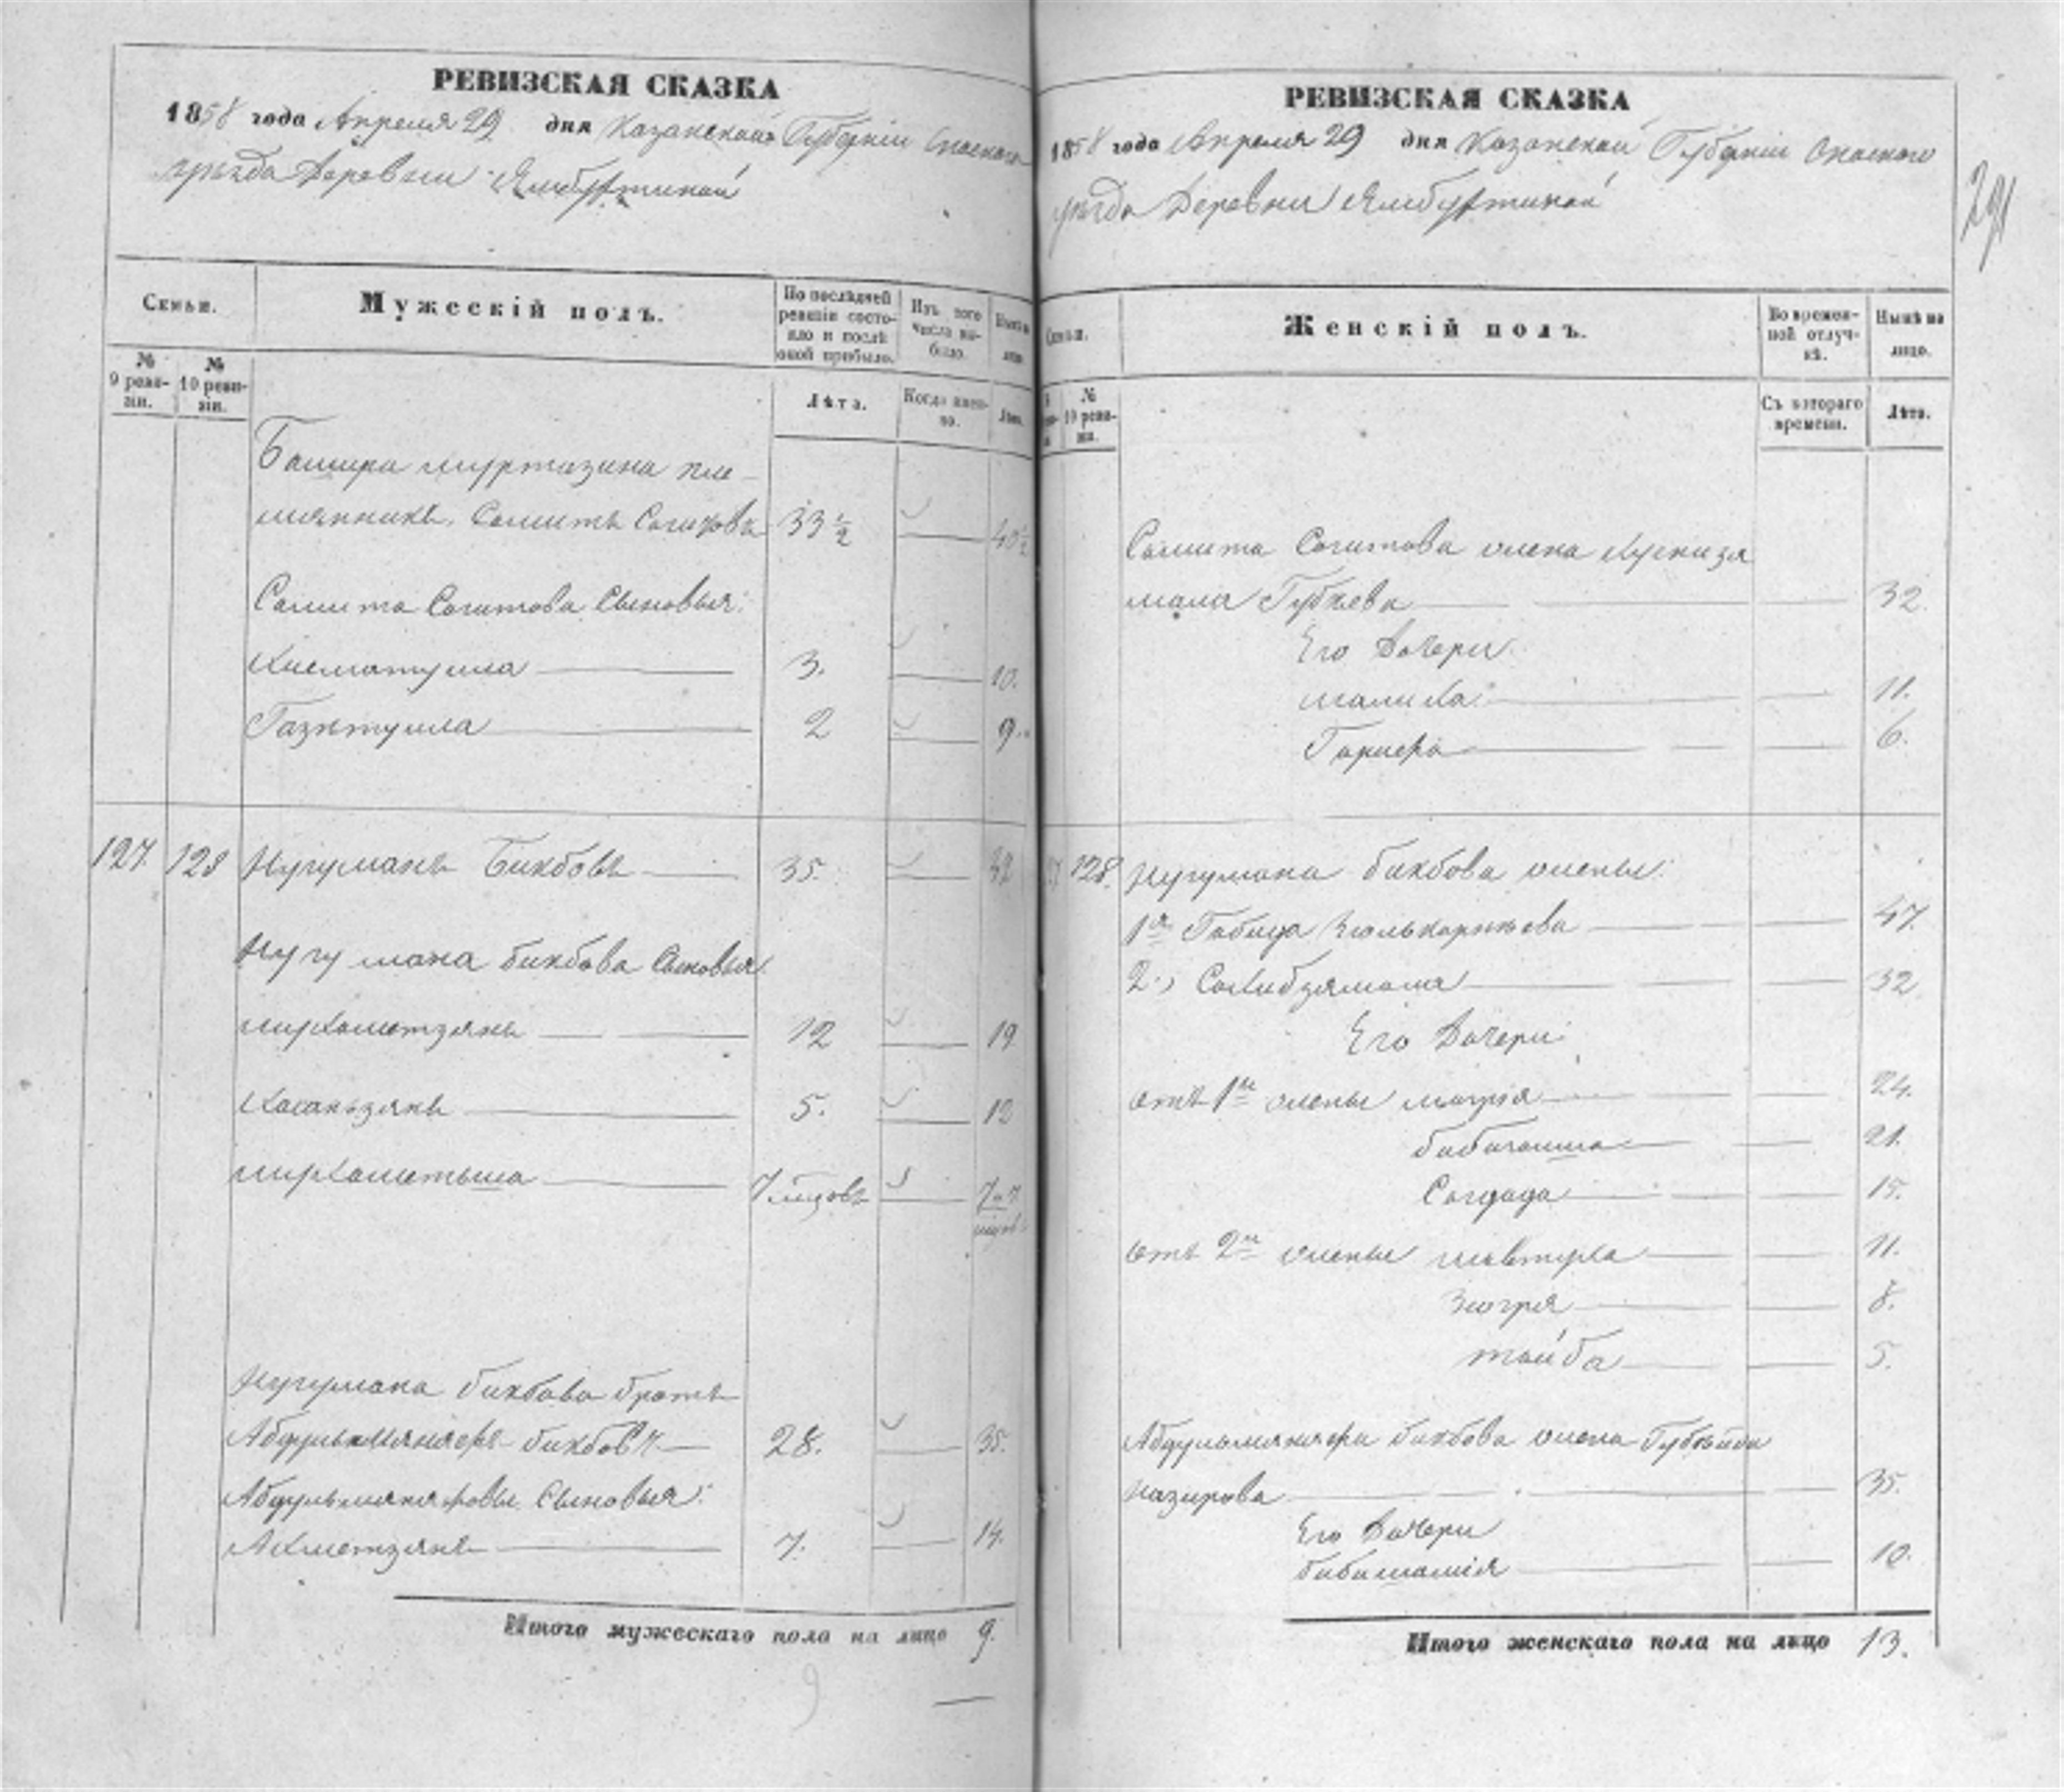 РЕВИЗСКАЯ СКАЗКА
1858 года Апреля 29 дня Казанской Губерніи Спаскаго
уѣзда Деревни Ямбухтиной
Семьи.
Мужескій полъ.
По послѣдней ревизіи состояло и послѣ оной прибыло.
Изъ того числа выбыло.
Нынѣ на лицо
№ 9 ревизіи.
№ 10 ревизіи.
Лѣта.
Когда именно.
Лѣта.
Башира муртазина пле-
мянникъ Самитъ Сагитовъ 33 1/2 40 1/2
Самита Сагитова Сыновья:
Хисматулла 3. 10.
Газятулла 2 9.
127. 128 Нугуманъ Бикбовъ 35.
Нугумана бикбова Сыновья
мирхаметзянъ 12 19
Хасанзянъ 5. 12
мирхаметьша 7 мѣсцовъ 7 и 7 мѣсцов
Нугумана бикбова братъ
Абдульмянафъ бикбовъ 28. 35.
Абдульмянафовы Сыновья:
Ахметзянъ 7. 14.
Итого мужескаго пола на лицо 9.
9
РЕВИЗСКАЯ СКАЗКА
1858 года Апреля 29 дня Казанской Губерніи Спаскаго
уѣзда Деревни Ямбухтиной
291
Семьи.
Женскій полъ.
Во временной отлучкѣ.
Нынѣ на лицо.
№ 10 ревизіи.
Съ котораго времени.
Лѣта.
Самита Сагитова жена Хуснизя
мала Губаева 32.
Его Дочери
малиха 11.
6.
128. Нугумана бикбова жены:
1я Габида Зюлькарнѣева 47.
2.) Сахибзямаля 32
Его Дочери:
отъ 1й жены магрія 24.
бибигайша 21.
Сагдада 15.
отъ 2й жены 11.
Зюгря 8.
тайба 5.
Абдульмянафа бикбова жена Губайда
Назирова 35.
Его Дочери
бибишамсія 10.
Итого женскаго пола на лицо 13.